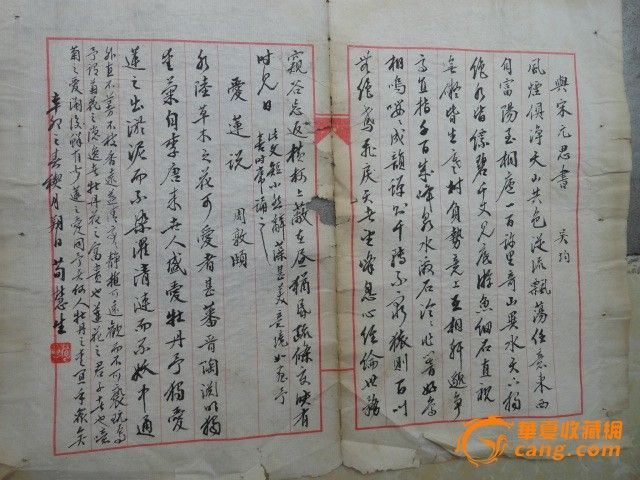 與宋元思書 吳均
風煙俱淨天山共色從流飄蕩任意東西
自富陽至桐廬一百許里奇山異水天下獨
絕水皆縹碧千丈見底游魚細石直視
無礙皆生寒樹負勢競上互相軒邈爭
高直指千百成峰泉水激石泠泠作響好鳥
相鳴嚶嚶成韻蟬則千轉不窮猿則百叫
無絕鳶飛戾天者望峰息心經綸世務
窺谷忘返橫柯上蔽在晝猶昏疏條交映有
時見日
此文短小然辭藻甚美意境如
喜時常誦之
愛蓮說 周敦頤
水陸草木之花可愛者甚蕃晉陶淵明獨
愛菊自李唐來世人盛愛牡丹予獨愛
蓮之出淤泥而不染濯清漣而不妖中通
外直不蔓不枝香遠益清亭靜植可遠觀而不可褻玩焉
予謂菊花之隱逸者牡丹花之富貴者也蓮花之君子者也噫
菊之愛陶後鮮有聞蓮之愛同予者何人牡丹之愛宜乎眾矣
辛卯之春禊月朔日 荀慧生
華夏收藏網
cang.com